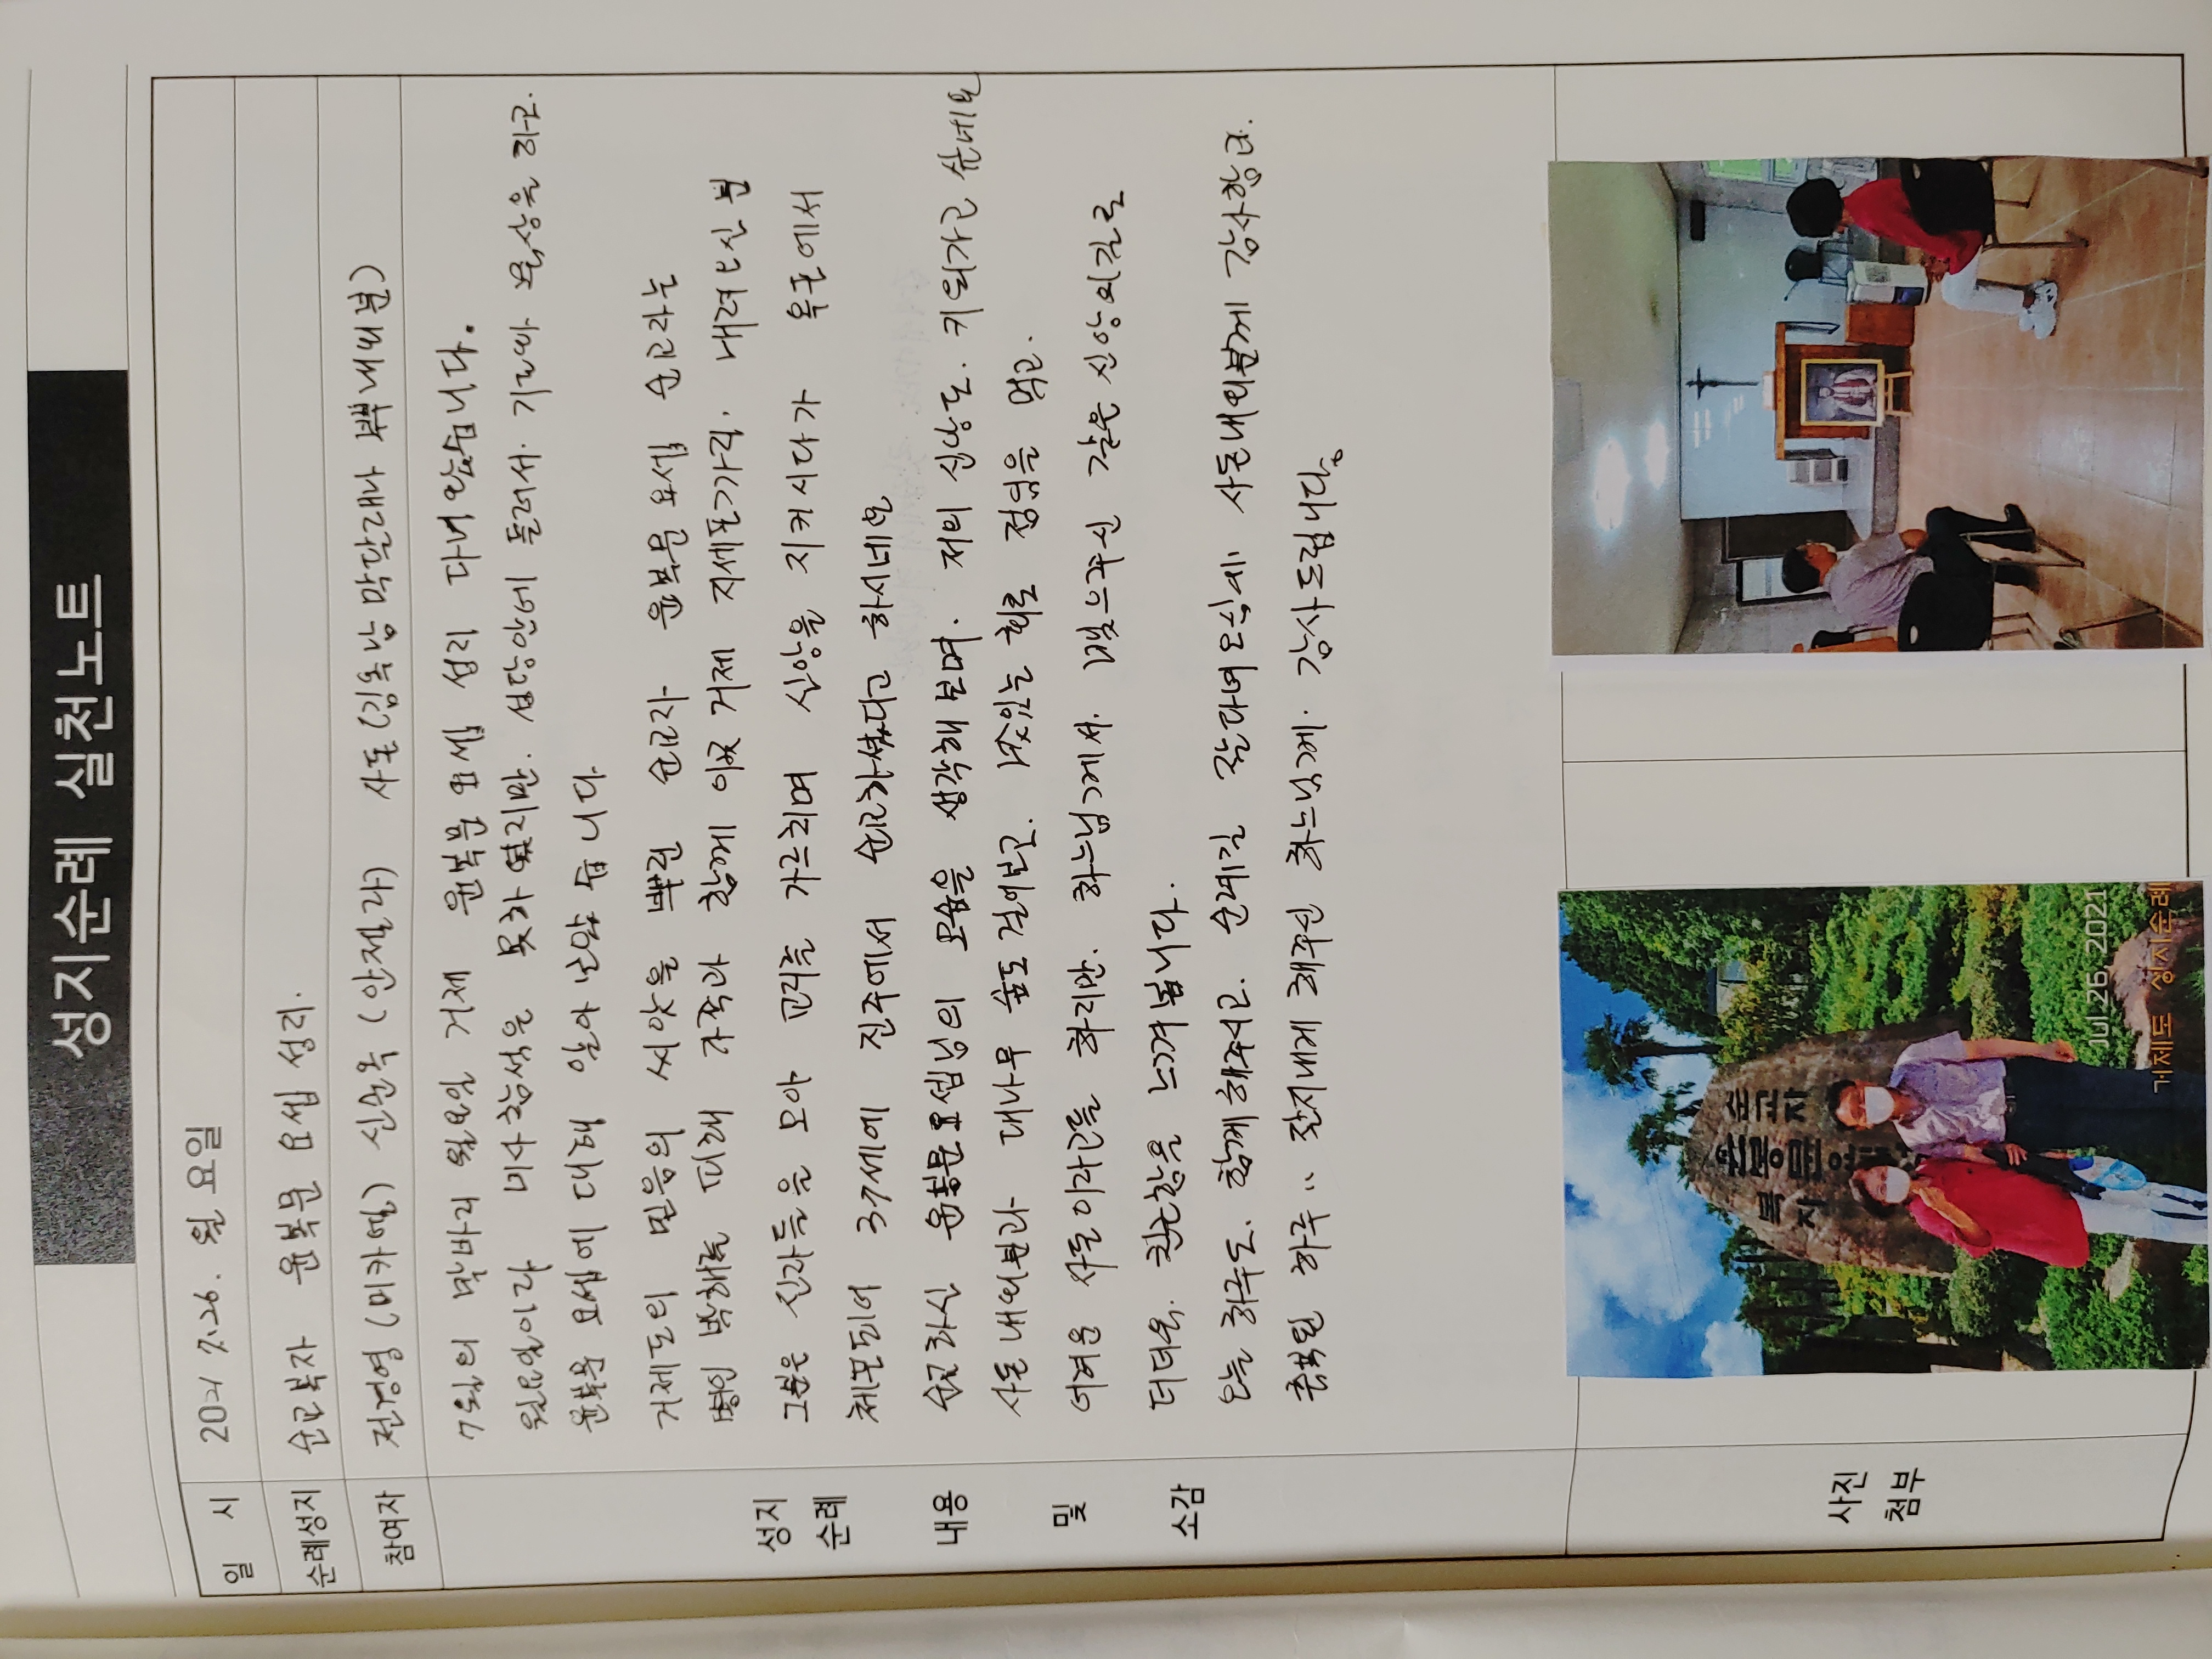 성지순례 실천노트
일 시 2021 7.26. 월 요일
순례성지 순교복자 윤복문 요셉 성지.
참여자 전경영(미카엘) 신순옥 (안젤라) 사돈(김옥남 막달래나 내외분)
7월의 막바지 월요일 거제 윤복문 요셉 성지 다녀왔습니다.
월요일이라 미사참석은 못하였지만. 성당안에 들러서. 기도와 묵상을 하고.
윤복문 요셉에 대해 알아 보았습니다
거제도의 믿음의 씨앗을 뿌린 순교자 윤복문 요셉 순교자는
병인 박해를 피해 가족과 함께 이곳 거제 지세포까지. 내려오신 분
그분은 신자들을 모아 교리를 가르치며 신앙을 지켜시다가 옥포에서
체포되어 37세에 진주에서 순교하셨다고 하시네요
순교하신 윤봉문요셉님의 모습을 생각해보며. 저의 신앙도. 키워가고 싶네요
사돈 내외분과 대나무 숲도 걸어보고. 맛있는 회로 점심을 먹고.
어려운 사돈이라고들 하지만. 하느님께서. 맺으주신 같은 신앙의길로
더더욱. 친근함을 느껴봅니다.
오늘 하루도. 함께해주시고. 순례길 잘다녀오심에 사돈내외분께 감사함과.
축복된 하루.. 잘지내게 해주신 하느님께. 감사드립니다.
성지
순례
내용
및
소감
사진
첨부
순교자
윤봉문요셉
복자
Jul 26, 2021
거제도 성지순례